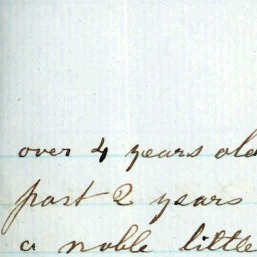 over 4 years old
past 2 years
a noble little